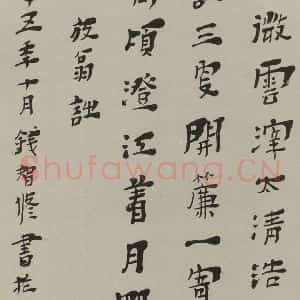 微雲滓太清浩
三更開簾一寄
頃澄江着月
放翁詩
五年十月錢智修書於
Shufawang.CN